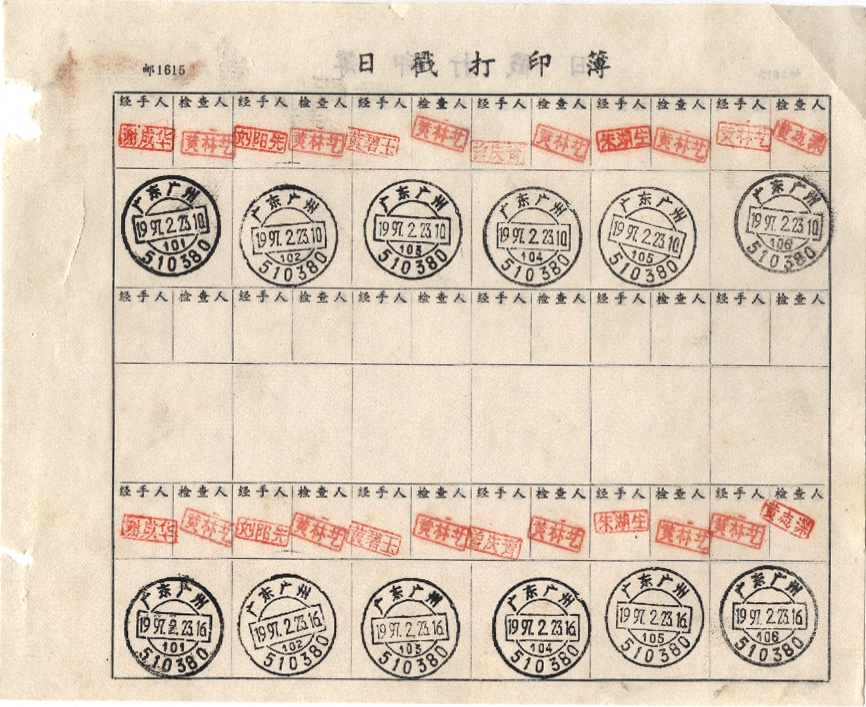 邮1615
日戳打印簿
经手人 检查人 经手人 检查人 经手人 检查人 经手人 检查人 经手人 检查人 经手人 检查人
谢成华 黄林艺 刘阳光 黄林艺 黄碧玉 黄林艺 黄林艺 朱湖生 黄林艺 黄林艺
广东广州 广东广州 广东广州 广东广州 广东广州 广东广州
1997.2.23.10 1997.2.23.10 1997.2.23.10 1997.2.23.10 1997.2.23.10 1997.2.23.10
101 102 103 104 105 106
510380 510380 510380 510380 510380 510380
经手人 检查人 经手人 检查人 经手人 检查人 经手人 检查人 经手人 检查人 经手人 检查人
经手人 检查人 经手人 检查人 经手人 检查人 经手人 检查人 经手人 检查人 经手人 检查人
谢成华 黄林艺 刘阳光 黄林艺 黄碧玉 黄林艺 黄林艺 朱湖生 黄林艺 黄林艺
广东广州 广东广州 广东广州 广东广州 广东广州 广东广州
1997.2.23.16 1997.2.23.16 1997.2.23.16 1997.2.23.16 1997.2.23.16 1997.2.23.16
101 102 103 104 105 106
510380 510380 510380 510380 510380 510380